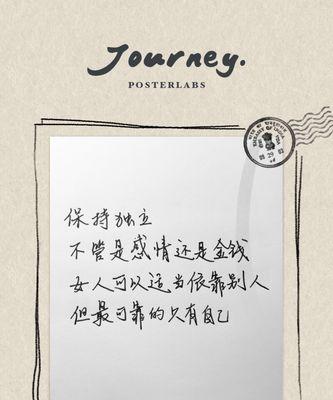 Journey.
POSTERLABS
保持独立
不管是感情还是金钱
女人可以适当依靠别人
但最可靠的只有自己